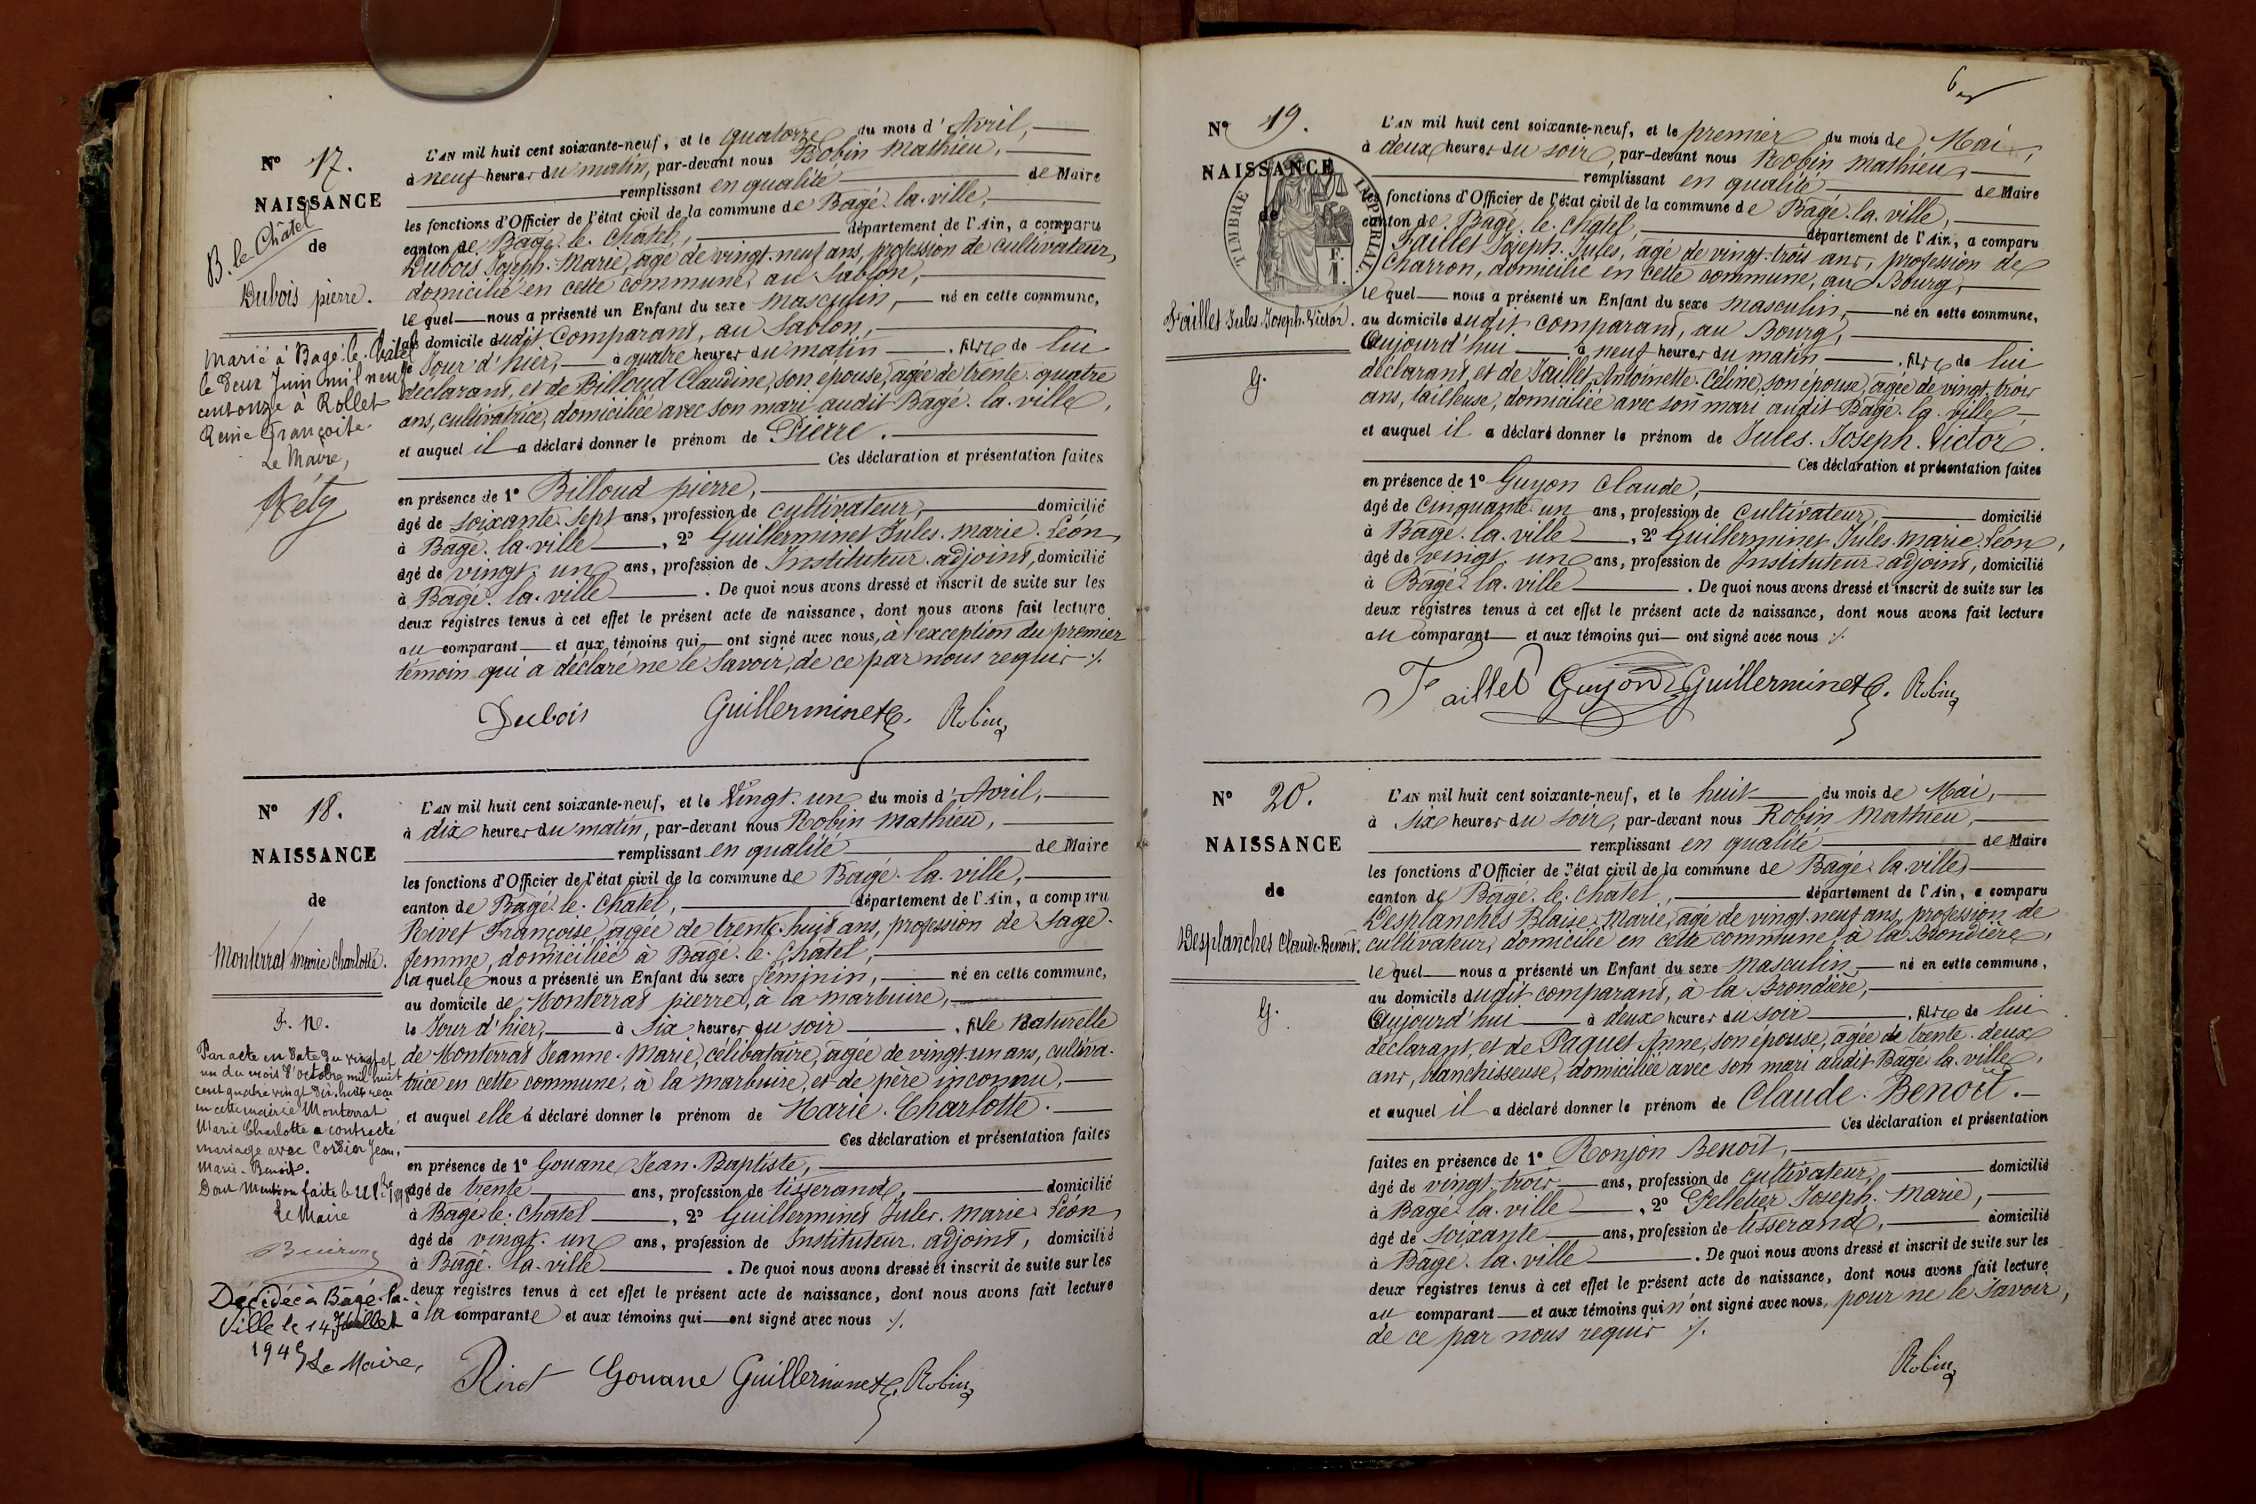 N° 17.
NAISSANCE
B. le Châtel
de
Dubois pierre.
Marié à Bagé-le-Châtel
le deux Juin mil neuf
cent onze à Rollet
Reine Françoise.
Le Maire,
L'AN mil huit cent soixante-neuf, et le quatorze du mois d'Avril,
à neuf heures du matin, par-devant nous Robin Mathieu,
remplissant en qualité de Maire
les fonctions d'Officier de l'état civil de la commune de Bagé-la-ville,
canton de Bagé-le-Châtel, département de l'Ain, a comparu
Dubois Joseph-Marie, âgé de vingt-neuf ans, profession de cultivateur,
domicilié en cette commune, au Sablon,
lequel nous a présenté un Enfant du sexe masculin, né en cette commune,
au domicile dudit Comparant, au Sablon,
le Jour d'hier, à quatre heures du matin, fils de lui
déclarant, et de Billoud Claudine, son épouse, âgée de trente-quatre
ans, cultivatrice, domiciliée avec son mari audit Bagé-la-ville,
et auquel il a déclaré donner le prénom de Pierre.
Ces déclaration et présentation faites
en présence de 1° Billoud pierre,
âgé de soixante-sept ans, profession de cultivateur, domicilié
à Bagé-la-ville, 2° Guillerminet Jules-marie-Léon,
âgé de vingt-un ans, profession de Instituteur-adjoint, domicilié
à Bagé-la-ville. De quoi nous avons dressé et inscrit de suite sur les
deux registres tenus à cet effet le présent acte de naissance, dont nous avons fait lecture
au comparant et aux témoins qui ont signé avec nous, à l'exception du premier
témoin qui a déclaré ne le savoir, de ce par nous requis ./.
Dubois Guillerminet Robin
N° 18.
NAISSANCE
de
Monterrat marie Charlotte.
F. N.
Par acte en date du vingt et
un du mois d'octobre mil huit
cent quatre vingt dix-huit reçu
en cette mairie Monterrat
Marie Charlotte a contracté
mariage avec Cordier Jean-
Marie-Benoit.
Dont Mention faite le
Le Maire
Décédée à Bagé-la-
Ville le 14 Juillet
1945 Le Maire,
L'AN mil huit cent soixante-neuf, et le Vingt-un du mois d'Avril,
à dix heures du matin, par-devant nous Robin Mathieu,
remplissant en qualité de Maire
les fonctions d'Officier de l'état civil de la commune de Bagé-la-ville,
canton de Bagé-le-Châtel, département de l'Ain, a comparu
Rivet Françoise, âgée de trente-huit ans, profession de Sage-
femme, domiciliée à Bagé-le-Châtel,
laquelle nous a présenté un Enfant du sexe féminin, né en cette commune,
au domicile de Monterrat pierre, à la marbuire,
le Jour d'hier, à six heures du soir, fille Naturelle
de Monterrat Jeanne-Marie, célibataire, âgée de vingt-un ans, cultiva-
trice en cette commune, à la marbuire, et de père inconnu,
et auquel elle a déclaré donner le prénom de Marie-Charlotte.
Ces déclaration et présentation faites
en présence de 1° Gouane Jean-Baptiste,
âgé de trente ans, profession de tisserand, domicilié
à Bagé-le-Châtel, 2° Guillerminet Jules-marie-Léon,
âgé de vingt-un ans, profession de Instituteur-adjoint, domicilié
à Bagé-la-ville. De quoi nous avons dressé et inscrit de suite sur les
deux registres tenus à cet effet le présent acte de naissance, dont nous avons fait lecture
à la comparante et aux témoins qui ont signé avec nous ./.
Rivet Gouane Guillerminet Robin
6
N° 19.
NAISSANCE
de
TIMBRE IMPERIAL
Faillet Jules-Joseph-Victor.
G.
L'AN mil huit cent soixante-neuf, et le premier du mois de Mai,
à deux heures du soir, par-devant nous Robin Mathieu,
remplissant en qualité de Maire
les fonctions d'Officier de l'état civil de la commune de Bagé-la-ville,
canton de Bagé-le-Châtel, département de l'Ain, a comparu
Faillet Joseph-Jules, âgé de vingt-trois ans, profession de
Charron, domicilié en cette commune, au Bourg,
lequel nous a présenté un Enfant du sexe masculin, né en cette commune,
au domicile dudit comparant, au Bourg,
Aujourd'hui à neuf heures du matin, fils de lui
déclarant, et de Jaillet Antoinette-Céline, son épouse, âgée de vingt-trois
ans, tailleuse, domiciliée avec son mari audit Bagé-la-ville,
et auquel il a déclaré donner le prénom de Jules-Joseph-Victor.
Ces déclaration et présentation faites
en présence de 1° Guyon Claude,
âgé de Cinquante-un ans, profession de cultivateur, domicilié
à Bagé-la-ville, 2° Guillerminet Jules-marie-Léon,
âgé de vingt-un ans, profession de Instituteur-adjoint, domicilié
à Bagé-la-ville. De quoi nous avons dressé et inscrit de suite sur les
deux registres tenus à cet effet le présent acte de naissance, dont nous avons fait lecture
au comparant et aux témoins qui ont signé avec nous ./.
Faillet Guyon Guillerminet Robin
N° 20.
NAISSANCE
de
Desplanches Claude-Benoit.
G.
L'AN mil huit cent soixante-neuf, et le huit du mois de Mai,
à six heures du soir, par-devant nous Robin Mathieu,
remplissant en qualité de Maire
les fonctions d'Officier de l'état civil de la commune de Bagé-la-ville
canton de Bagé-le-Châtel, département de l'Ain, a comparu
Desplanches Blaise-Marie, âgé de vingt-neuf ans, profession de
cultivateur, domicilié en cette commune, à la Brondière,
lequel nous a présenté un Enfant du sexe Masculin, né en cette commune,
au domicile dudit comparant, à la Brondière,
Aujourd'hui à deux heures du soir, fils de lui
déclarant, et de Paquet Anne, son épouse, âgée de trente-deux
ans, blanchisseuse, domiciliée avec son mari audit Bagé-la-ville,
et auquel il a déclaré donner le prénom de Claude-Benoit.
Ces déclaration et présentation
faites en présence de 1° Ronjon Benoit,
âgé de vingt-trois ans, profession de cultivateur, domicilié
à Bagé-la-ville, 2° Pelletier Joseph-Marie,
âgé de soixante ans, profession de tisserand, domicilié
à Bagé-la-ville. De quoi nous avons dressé et inscrit de suite sur les
deux registres tenus à cet effet le présent acte de naissance, dont nous avons fait lecture
au comparant et aux témoins qui n'ont signé avec nous, pour ne le savoir,
de ce par nous requis ./.
Robin